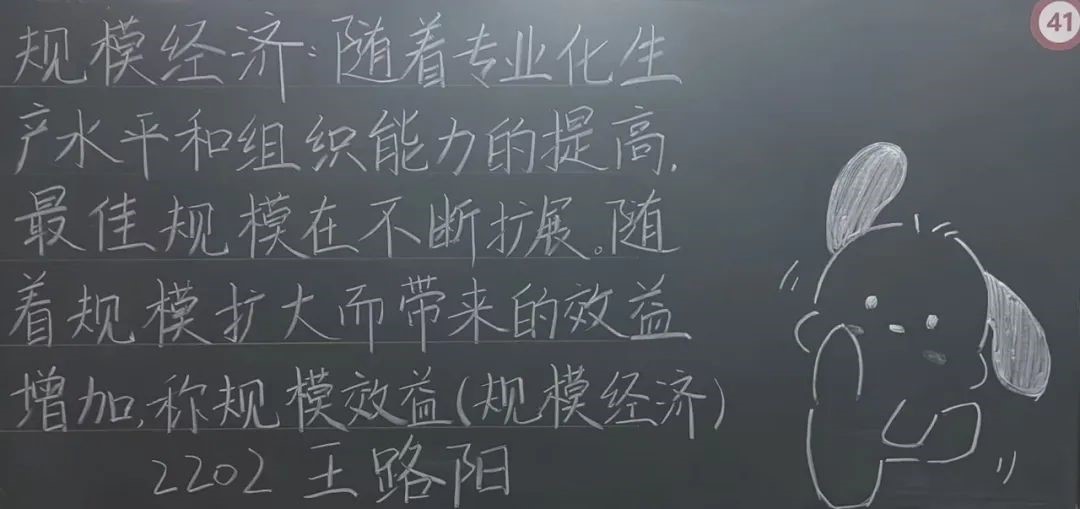 规模经济:随着专业化生
产水平和组织能力的提高,
最佳规模在不断扩展。随
着规模扩大而带来的效益
增加,称规模效益(规模经济)
2202 王路阳
41